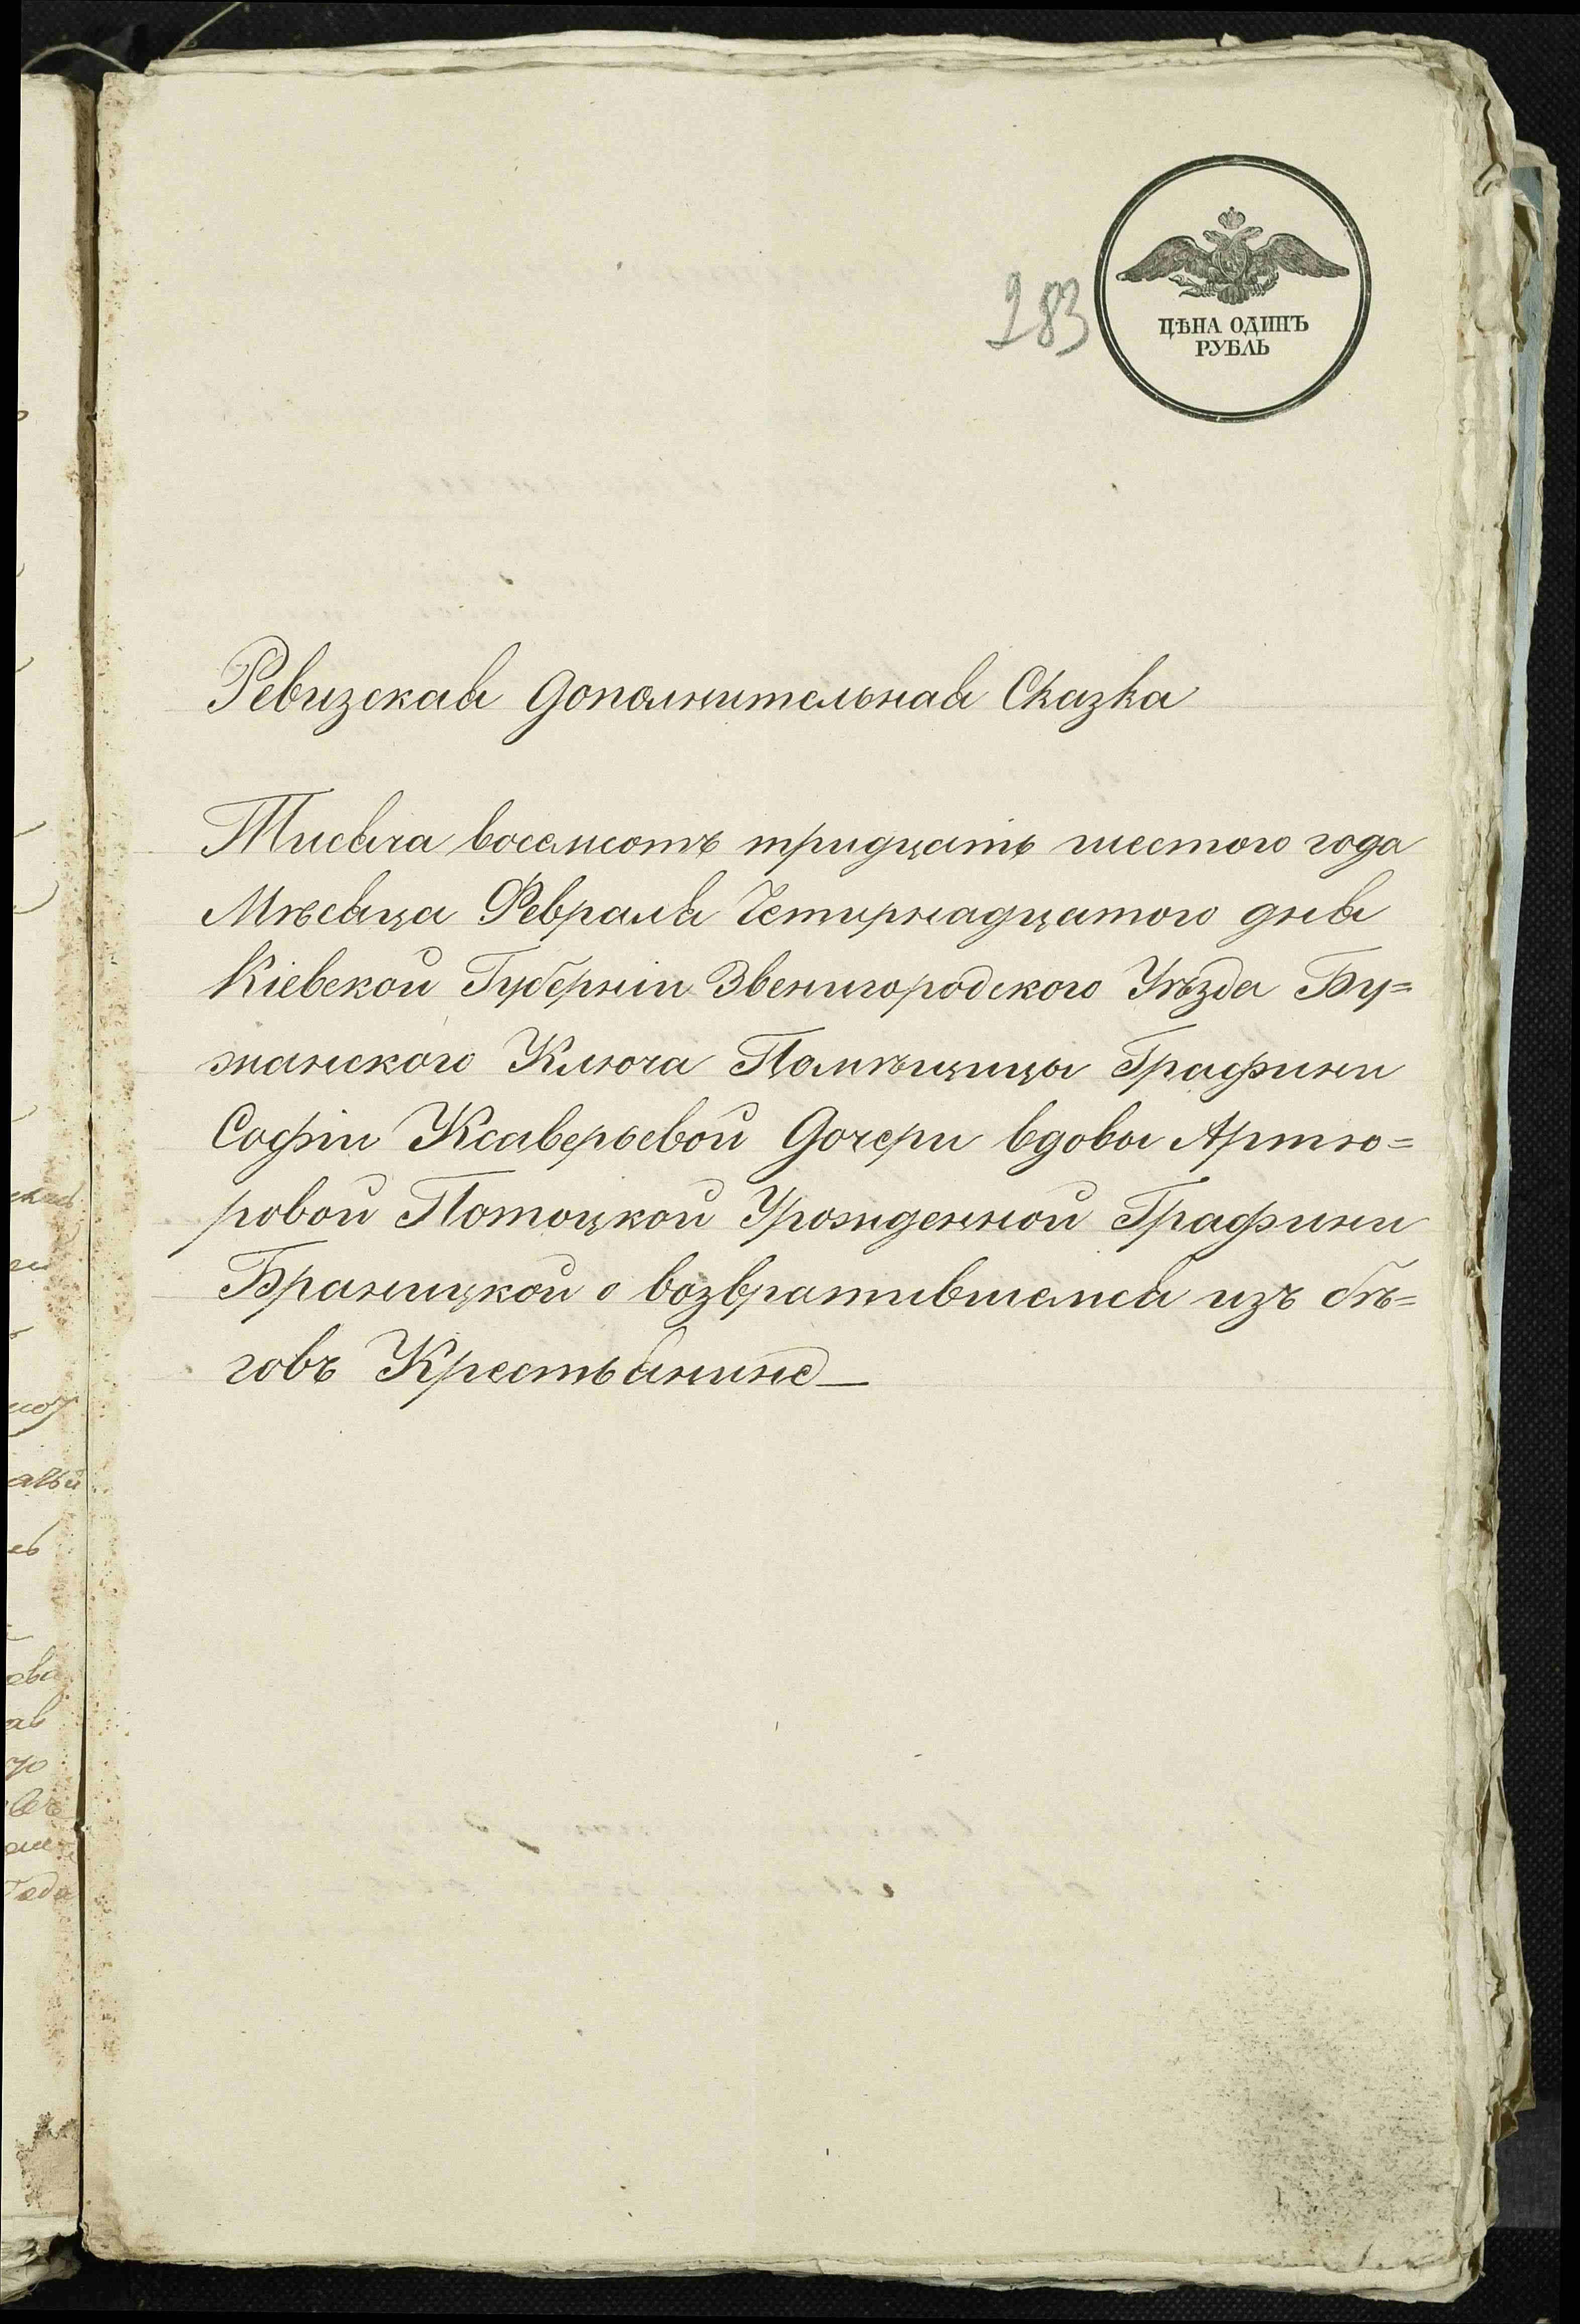 283
ЦѢНА ОДИНЪ
РУБЛЬ
Ревизская дополнительная Сказка
Тисяча восемсотъ тридцать шестого года
Мѣсяца Февраля Четирнадцатого дня
Кіевской Губерніи Звенигородского Уѣзда Бу=
жанского Ключа Помѣщицы Графини
Софіи Ксаверьевой Дочери вдовы Артю=
ровой Потоцкой Урожденной Графини
Браницкой о возвратившемся изъ бѣ=
говъ Крестьянине